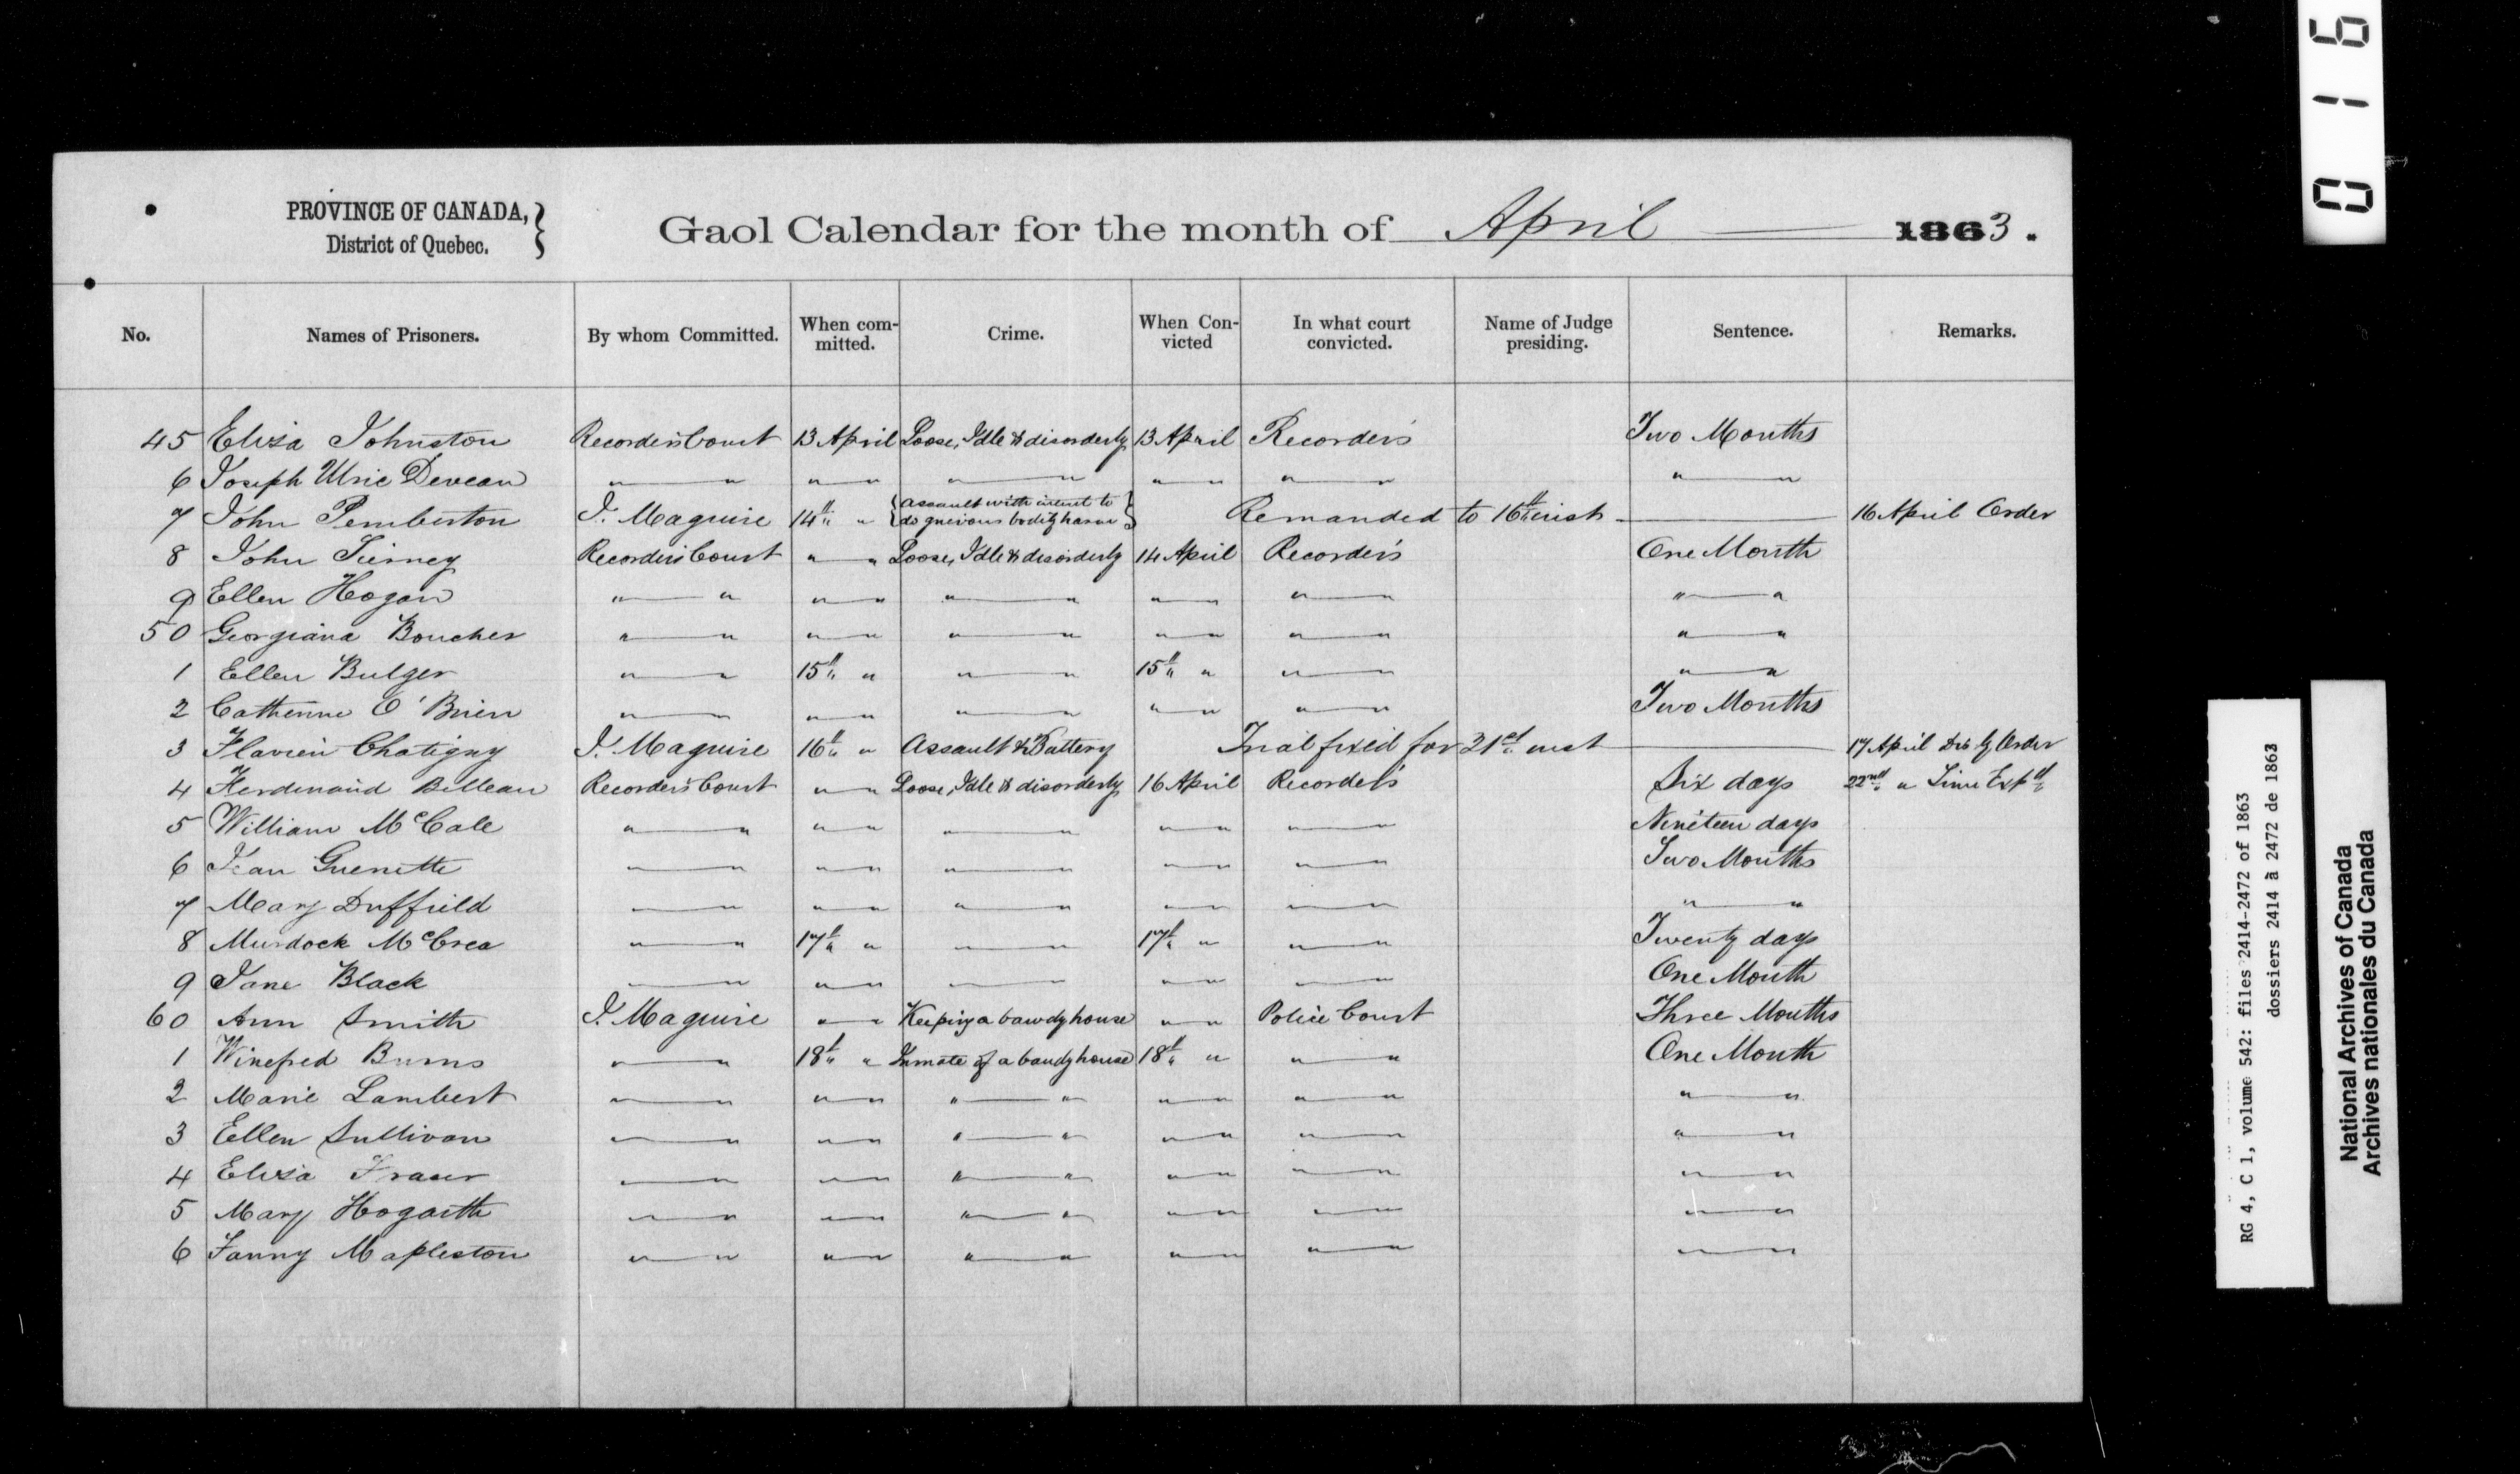 PROVINCE OF CANADA,
District of Quebec.
Gaol Calendar for the month of April 1863.
No. Names of Prisoners. By whom Committed. When committed. Crime. When Convicted In what court convicted. Name of Judge presiding. Sentence. Remarks.
45 Eliza Johnston Recorder's Court 13 April Loose, Idle & disorderly 13 April Recorder's Two Months
6 Joseph Ulric Deveau " " " " " " " " " " " "
7 John Pemberton J. Maguire 14th " {Assault with intent to do grievous bodily harm} Remanded to 16th inst — 16 April Order
8 John Tierney Recorder's Court " " Loose, Idle & disorderly 14 April Recorder's One Month
9 Ellen Hogan " " " " " " " " " " " "
50 Georgiana Boucher " " " " " " " " " " " "
1 Ellen Bulger " " 15th " " " 15th " " " " "
2 Catherine O'Brien " " " " " " " " " " Two Months
3 Flavien Chatigny J. Maguire 16th " Assault & Battery Trial fixed for 21st inst — 17 April Dis by Order
4 Ferdinand Billeau Recorder's Court " " Loose, Idle & disorderly 16 April Recorder's Six days 22nd " Time Expd
5 William McCale " " " " " " " " " " Nineteen days
6 Jean Guenette " " " " " " " " " " Two Months
7 Mary Duffield " " " " " " " " " " " "
8 Murdock McCrea " " 17th " " " 17th " " " Twenty days
9 Jane Black " " " " " " " " " " One Month
60 Ann Smith J. Maguire " " Keeping a bawdy house " " Police Court Three Months
1 Winefred Burns " " 18th " Inmate of a baudy house 18th " " " One Month
2 Marie Lambert " " " " " " " " " " " "
3 Ellen Sullivan " " " " " " " " " " " "
4 Eliza Fraser " " " " " " " " " " " "
5 Mary Hogarth " " " " " " " " " " " "
6 Fanny Mapleston " " " " " " " " " " " "
016
RG 4, C 1, volume 542: files 2414-2472 of 1863
dossiers 2414 à 2472 de 1863
National Archives of Canada
Archives nationales du Canada